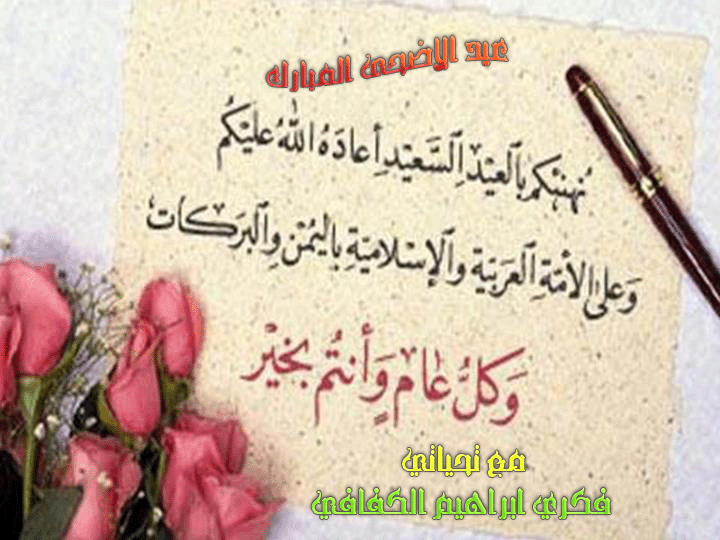 عيد الاضحى المبارك
نُهنئكم بالعيد السَّعيد أعادَهُ اللّٰهُ عليْكُم
وَعلى الأمّةِ العَرَبيّة والإسْلاميّةِ باليُمْن والبَرَكات
وَكلُّ عام وَأنتُم بخيْر
مع تحياتي
فكري ابراهيم الكفافي